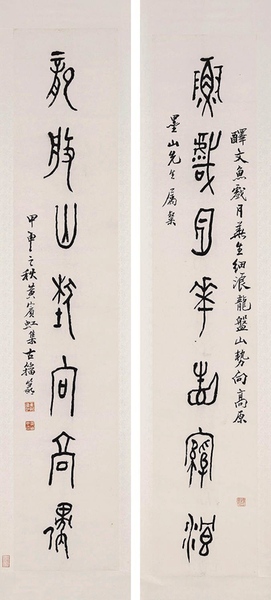 釋文魚戲月華生細浪龍盤山勢向高原
魚戲月華生細浪
墨山先生屬集
龍盤山勢向高原
甲申之秋黃賓虹集古籀篆